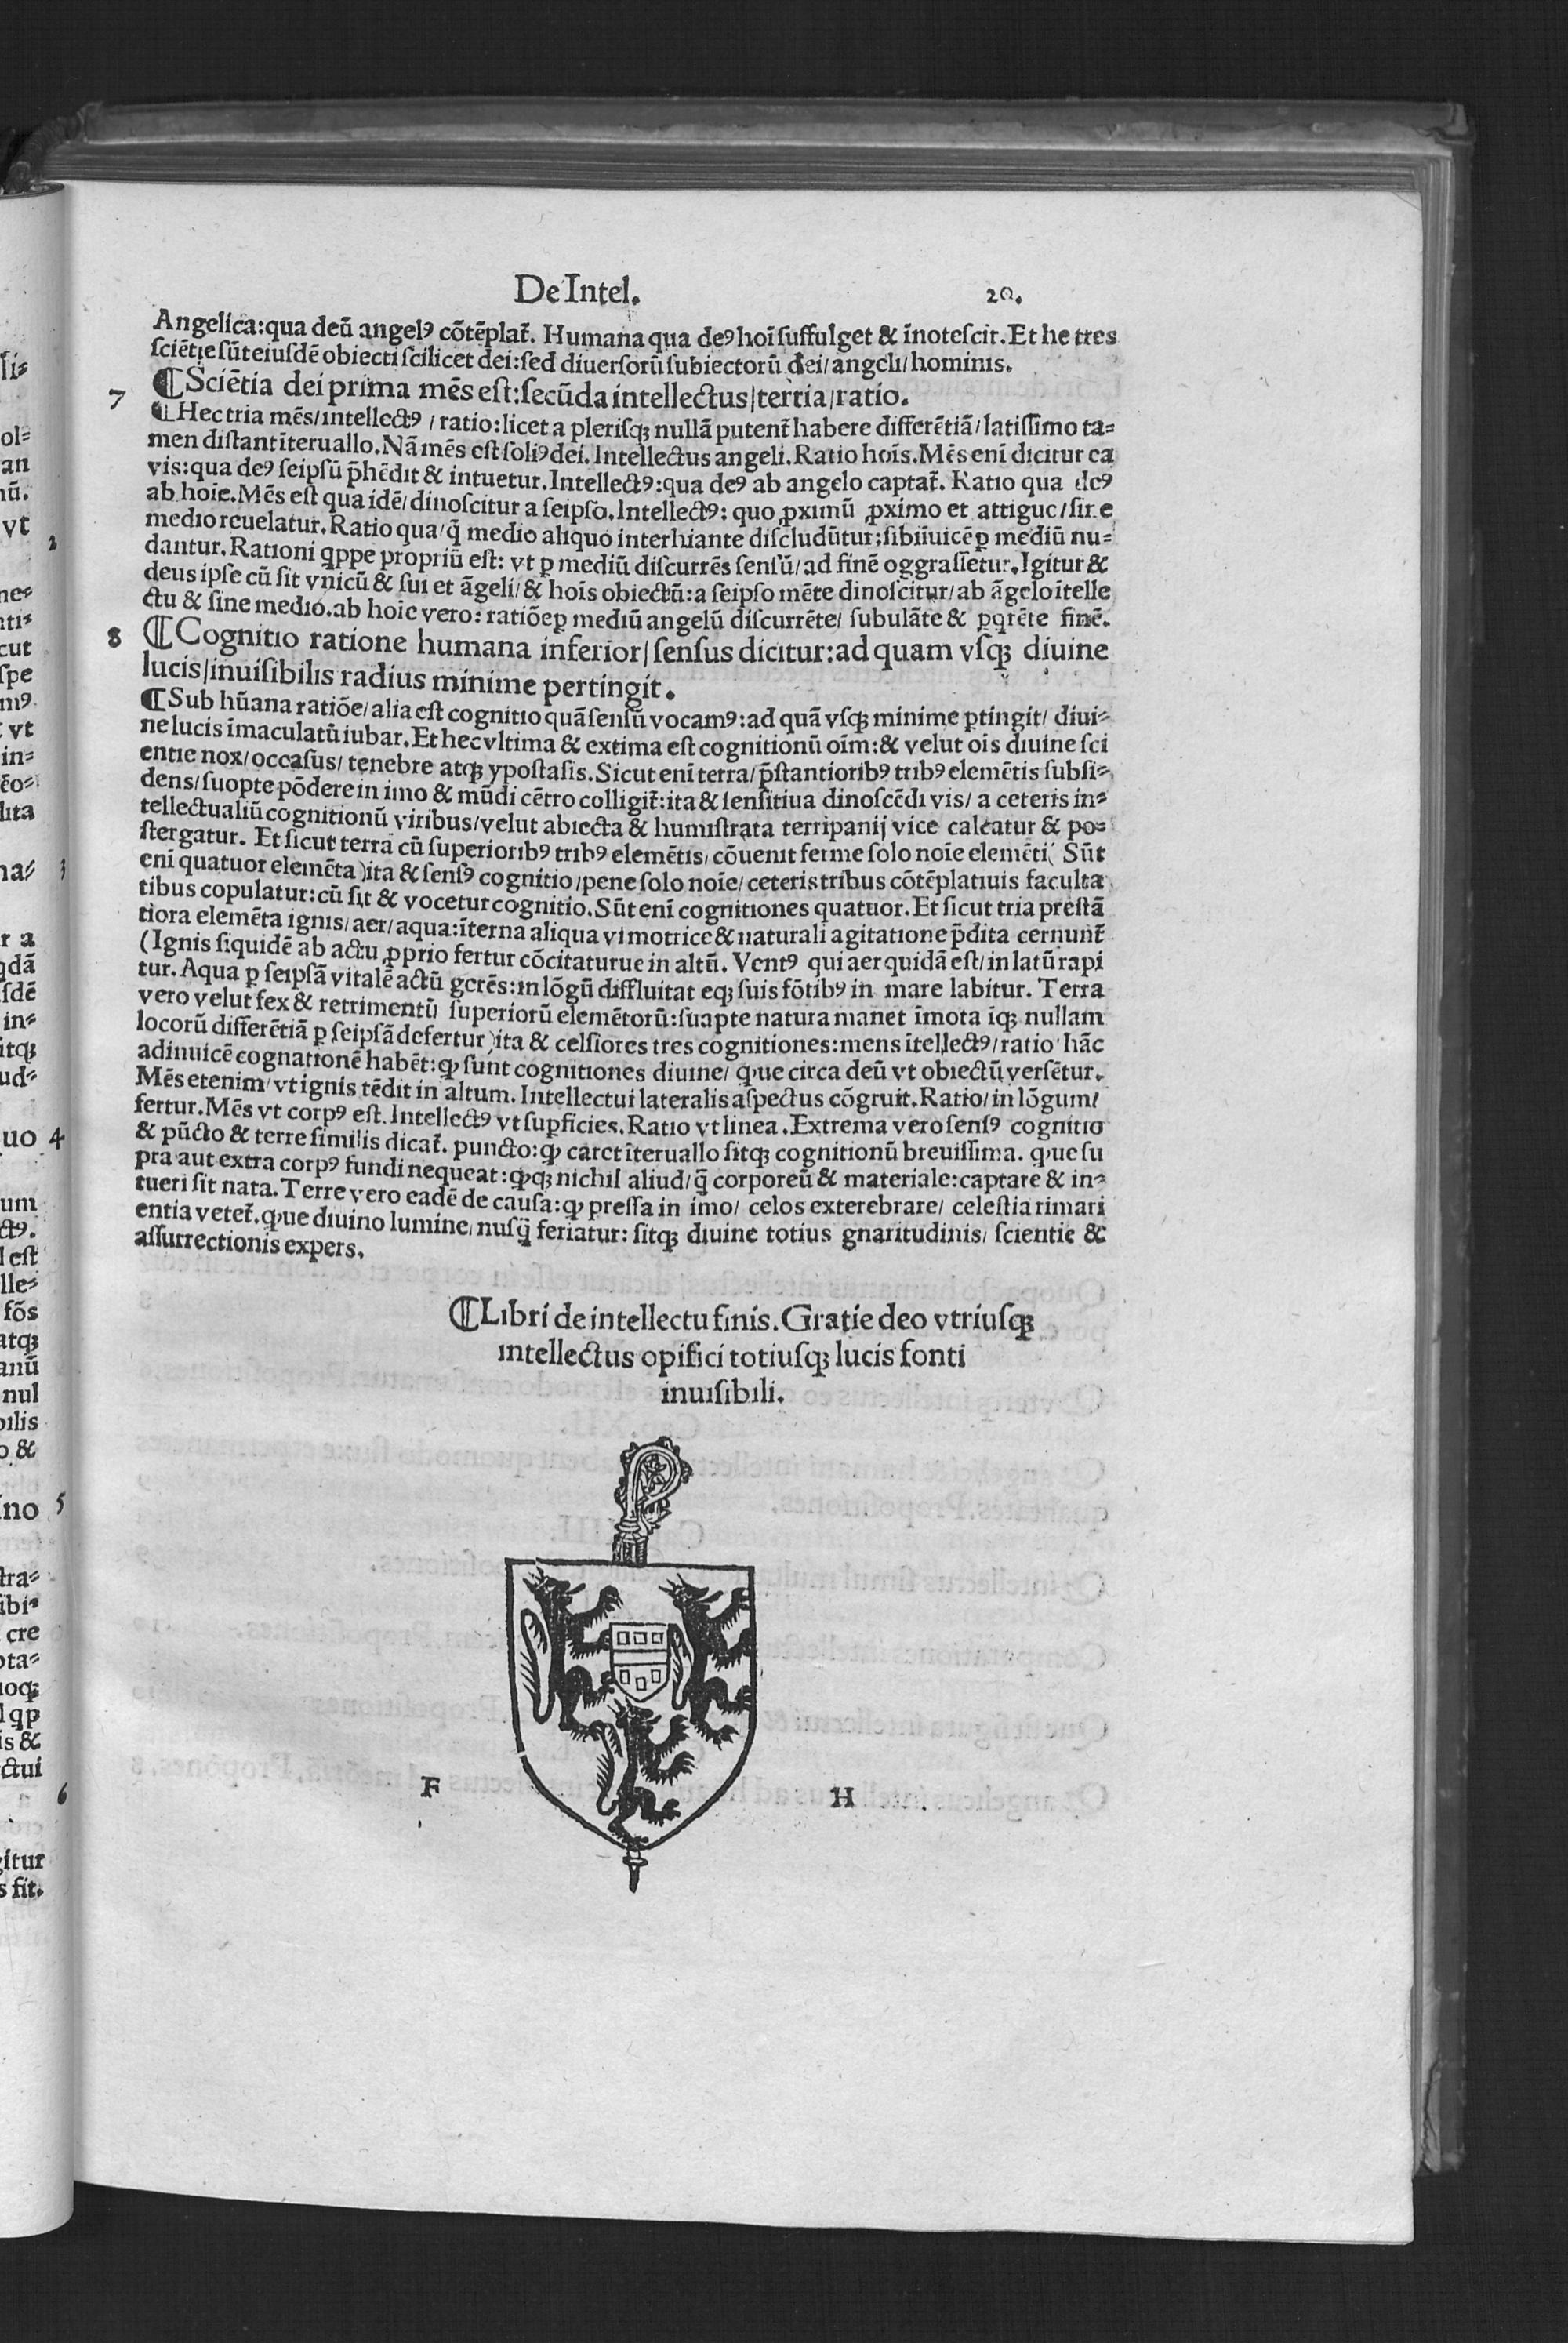 De Intel. 20.
Angelica:qua deū angelꝰ cōtēplat̄. Humana qua deꝰ hoī ſuffulget & īnoteſcit. Et he tres
ſciētie ſūt eiuſdē obiecti ſcilicet dei:ſed diuerſorū ſubiectorū dei/ angeli/ hominis.
7 ¶Sciētia dei prima mēs eſt:ſecūda intellectus/tertia/ratio.
¶Hec tria mēs/intellectꝰ/ ratio:licet a pleriſqꝫ nullā putent̄ habere differētiā/latiſſimo ta⸗
men diſtant īteruallo. Nā mēs eſt ſoliꝰ dei. Intellectus angeli. Ratio hoīs. Mēs enī dicitur ea
vis:qua deꝰ ſeipſū p̄hēdit & intuetur. Intellectꝰ:qua deꝰ ab angelo captat̄. Ratio qua deꝰ
ab hoīe. Mēs eſt qua idē/ dinoſcitur a ſeipſo. Intellectꝰ: quo ꝓximū ꝓximo et attiguo/ſine
medio reuelatur. Ratio qua/ q̄ medio aliquo interhiante diſcludūtur:ſibiīuicē ꝑ mediū nu⸗
dantur. Rationi qppe propriū eſt: vt ꝑ mediū diſcurrēs ſenſū/ ad finē oggraſſietur. Igitur &
deus ipſe cū ſit vnicū & ſui et āgeli/ & hoīs obiectū:a ſeipſo mēte dinoſcitur/ ab āgelo ītelle
ctu & ſine medio. ab hoīe vero: ratiōe ꝑ mediū angelū diſcurrēte/ ſubulāte & ꝑqrēte finē.
8 ¶Cognitio ratione humana inferior/ ſenſus dicitur:ad quam vſqꝫ diuine
lucis/inuiſibilis radius minime pertingit.
¶Sub hūana ratiōe/ alia eſt cognitio quā ſenſū vocamꝰ:ad quā vſqꝫ minime ꝑtingit/ diui⸗
ne lucis īmaculatū iubar. Et hec vltima & extima eſt cognitionū oīm:& velut oīs diuine ſci
entie nox/ occaſus/ tenebre atqꝫ ypoſtaſis. Sicut enī terra/ p̄ſtantioribꝰ tribꝰ elemētis ſubſi⸗
dens/ ſuopte pōdere in imo & mūdi cētro colligit̄:ita & ſenſitiua dinoſcēdi vis/ a ceteris in⸗
tellectualiū cognitionū viribus/ velut abiecta & humiſtrata terripanij vice calcatur & po⸗
ſtergatur. Et ſicut terra cū ſuperioribꝰ tribꝰ elemētis/ cōuenit ferme ſolo noīe elemēti( Sūt
enī quatuor elemēta )ita & ſenſꝰ cognitio/ pene ſolo noīe/ ceteris tribus cōtēplatiuis faculta
tibus copulatur:cū ſit & vocetur cognitio. Sūt enī cognitiones quatuor. Et ſicut tria preſtā
tiora elemēta ignis/ aer/ aqua:īterna aliqua vi motrice & naturali agitatione p̄dita cernunt̄
(Ignis ſiquidē ab actu ꝓprio fertur cōcitaturue in altū. Ventꝰ qui aer quidā eſt/ in latū rapi
tur. Aqua ꝑ ſeipſā vitalē actū gerēs:in lōgū diffluitat eqꝫ ſuis fōtibꝰ in mare labitur. Terra
vero velut fex & retrimentū ſuperiorū elemētorū:ſuapte natura manet īmota īqꝫ nullam
locorū differētiā ꝑ ſeipſā defertur )ita & celſiores tres cognitiones:mens ītellectꝰ/ ratio hāc
adinuicē cognationē habēt:ꝙ ſunt cognitiones diuine/ que circa deū vt obiectū verſētur.
Mēs etenim/ vt ignis tēdit in altum. Intellectui lateralis aſpectus cōgruit. Ratio/ in lōgum/
fertur. Mēs vt corpꝰ eſt. Intellectꝰ vt ſuꝑficies. Ratio vt linea. Extrema vero ſenſꝰ cognitio
& pūcto & terre ſimilis dicat̄. puncto:ꝙ caret īteruallo ſitqꝫ cognitionū breuiſſima. que ſu
pra aut extra corpꝰ fundi nequeat:ꝙqꝫ nichil aliud/ q̄ corporeū & materiale:captare & in⸗
tueri ſit nata. Terre vero eadē de cauſa:ꝙ preſſa in imo/ celos exterebrare/ celeſtia rimari
entia vetet̄. que diuino lumine/ nuſq̄ feriatur: ſitqꝫ diuine totius gnaritudinis/ ſcientie &
aſſurrectionis expers.
¶Libri de intellectu finis. Gratie deo vtriuſqꝫ
intellectus opifici totiuſqꝫ lucis fonti
inuiſibili.
F H